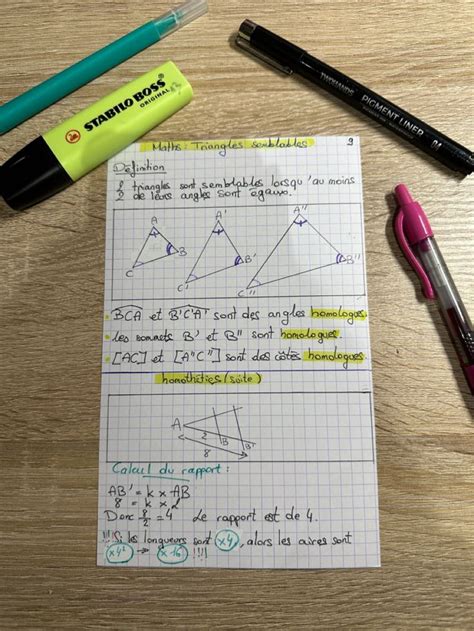 STABILO BOSS
ORIGINAL
TWOHANDS PIGMENT LINER 01
Maths: Triangles semblables
Définition
2 triangles sont semblables lorsqu'au moins
2 de leurs angles sont égaux.
A A' A''
B B' B''
C C' C''
BCA et B'C'A' sont des angles homologues.
les sommets B' et B'' sont homologues.
[AC] et [A''C''] sont des côtés homologues.
homothéties (suite)
A 2 B B'
8
Calcul du rapport :
AB' = k x AB
8 = k x 2
Donc 8/2 = 4 Le rapport est de 4.
!!!! Si les longueurs sont x4, alors les aires sont
x4² → x16 !!!!